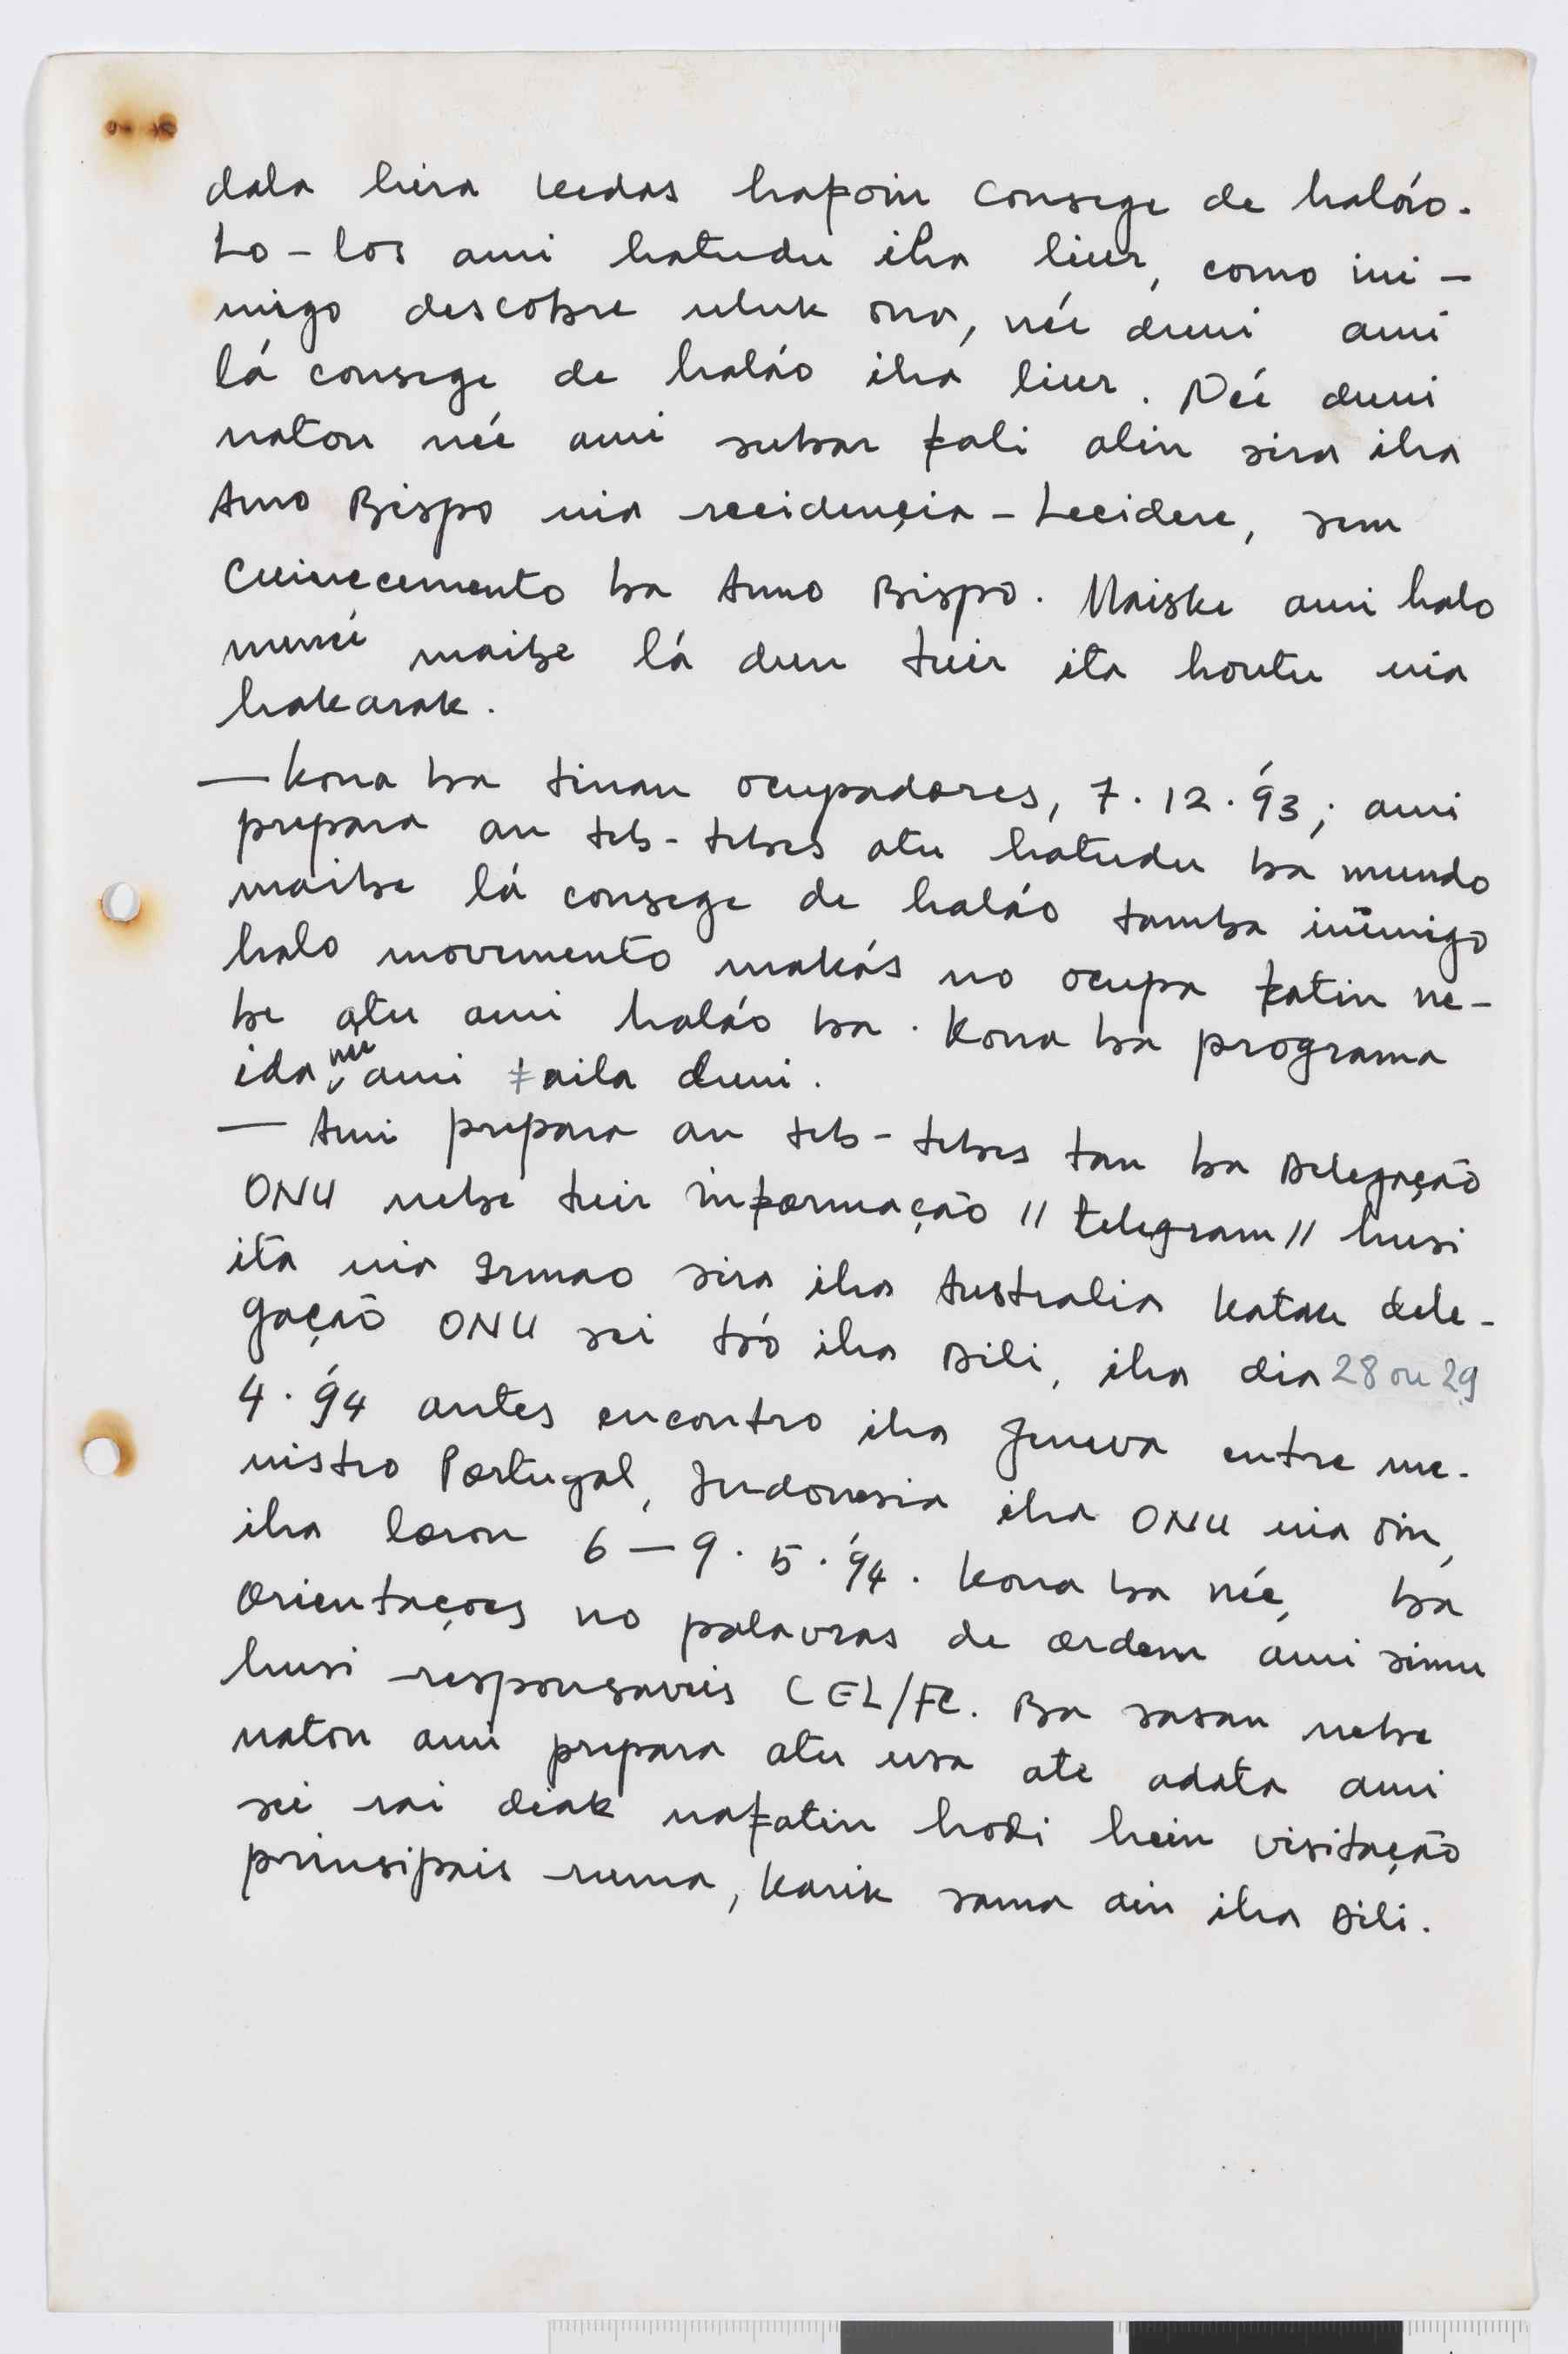 dala hira leedas hafoin consege de haláo.
Lo-los ami hatudu iha liur, como ini-
migo descobre uluk ona, néé duni ami
lá consege de haláo iha liur. Néé duni
naton néé ami subar fali alin sira iha
Amo Bispo nia recidençia - Lecidere, sem
Cuinecemento ba Amo Bispo. Maiske ami halo
nunéé maibe lá dun tuir ita houtu nia
hakarak.
— Kona ba tinan ocupadores, 7.12.'93; ami
prepara an teb-tebes atu hatudu ba mundo
maibe lá consege de haláo tamba inimigo
halo movimento makás no ocupa fatin ne-
be atu ami haláo ba. Kona ba programa
ida néé ami faila duni.
— Ami prepara an teb-tebes tan ba Delegação
ONU nebe tuir informação "telegram" husi
ita nia Irmao sira iha Australia katak dele-
gação ONU sei tó iha Dili, iha dia 28 ou 29
4.'94 antes encontro iha Jeneva entre me-
nistro Portugal, Indonesia iha ONU nia oin,
iha loron 6—9.5.'94. Kona ba néé, ba
Orientaçoes no palavras de ordem ami simu
husi responsaveis CEL/FC. Ba sasan nebe
naton ami prepara atu usa ate adata ami
sei rai diak nafatin hodi hein visitação
prinsipais ruma, karik sama ain iha Dili.